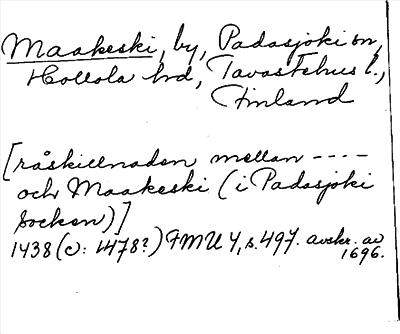 Maakeski, by, Padasjoki sn,
Hollola hd, Tavastehus l.,
Finland
[råskillnaden mellan ----
och Maakeski (i Padasjoki
socken)]
1438 (c: 1478?) FMU 4, s. 497. avskr. av
1696.